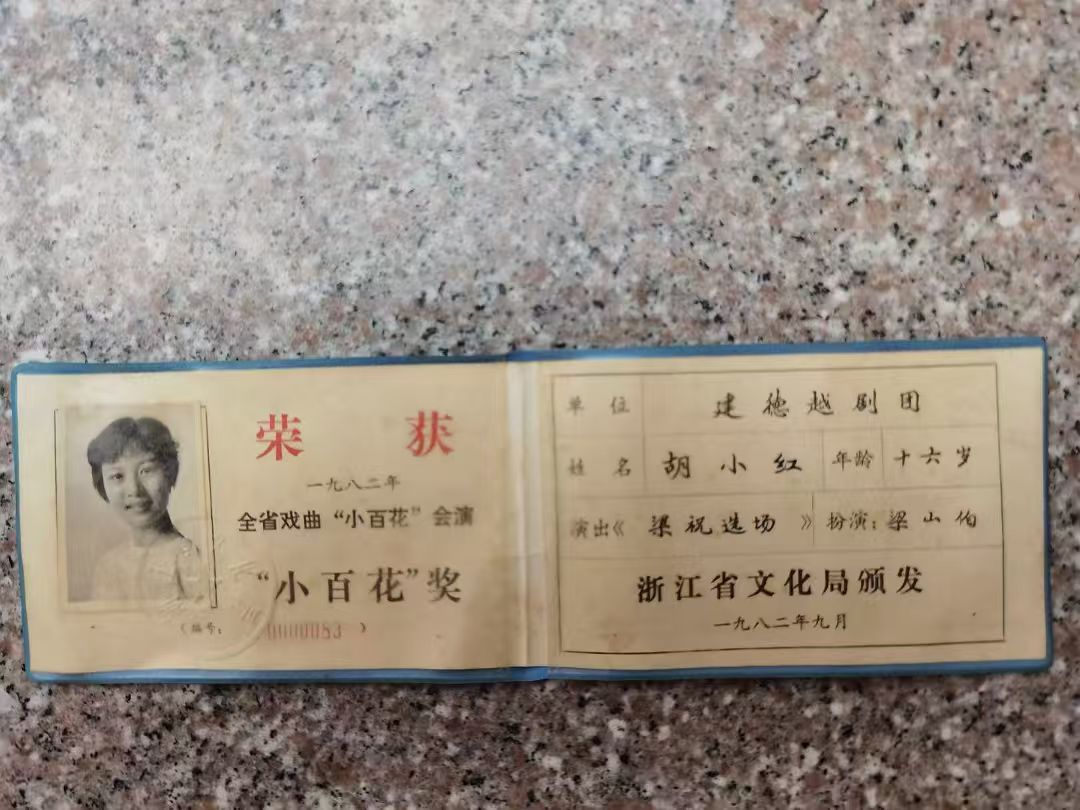 荣 获
一九八二年
全省戏曲“小百花”会演
“小百花”奖
（编号: 0000083 ）
单 位 建德越剧团
姓 名 胡小红 年龄 十六岁
演出《 梁祝选场 》 扮演: 梁山伯
浙江省文化局颁发
一九八二年九月